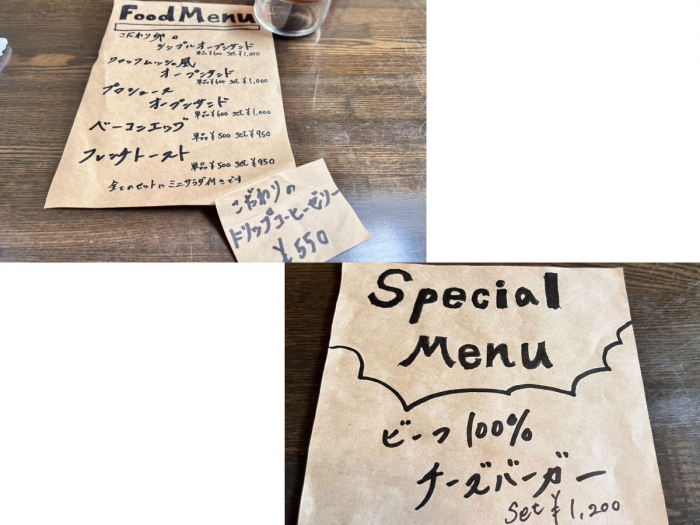 Food Menu
こだわり卵の
シンプルオープンサンド
単品¥600 set ¥1,000
クロックムッシュ風
オープンサンド
単品¥600 set ¥1,000
プロシュート
オープンサンド
単品¥600 set ¥1,000
ベーコンエッグ
単品¥500 set ¥950
フレンチトースト
単品¥500 set ¥950
全てのセットにミニサラダ付きです
こだわりの
ドリップコーヒーゼリー
¥550
Special
Menu
ビーフ100%
チーズバーガー
set ¥1,200